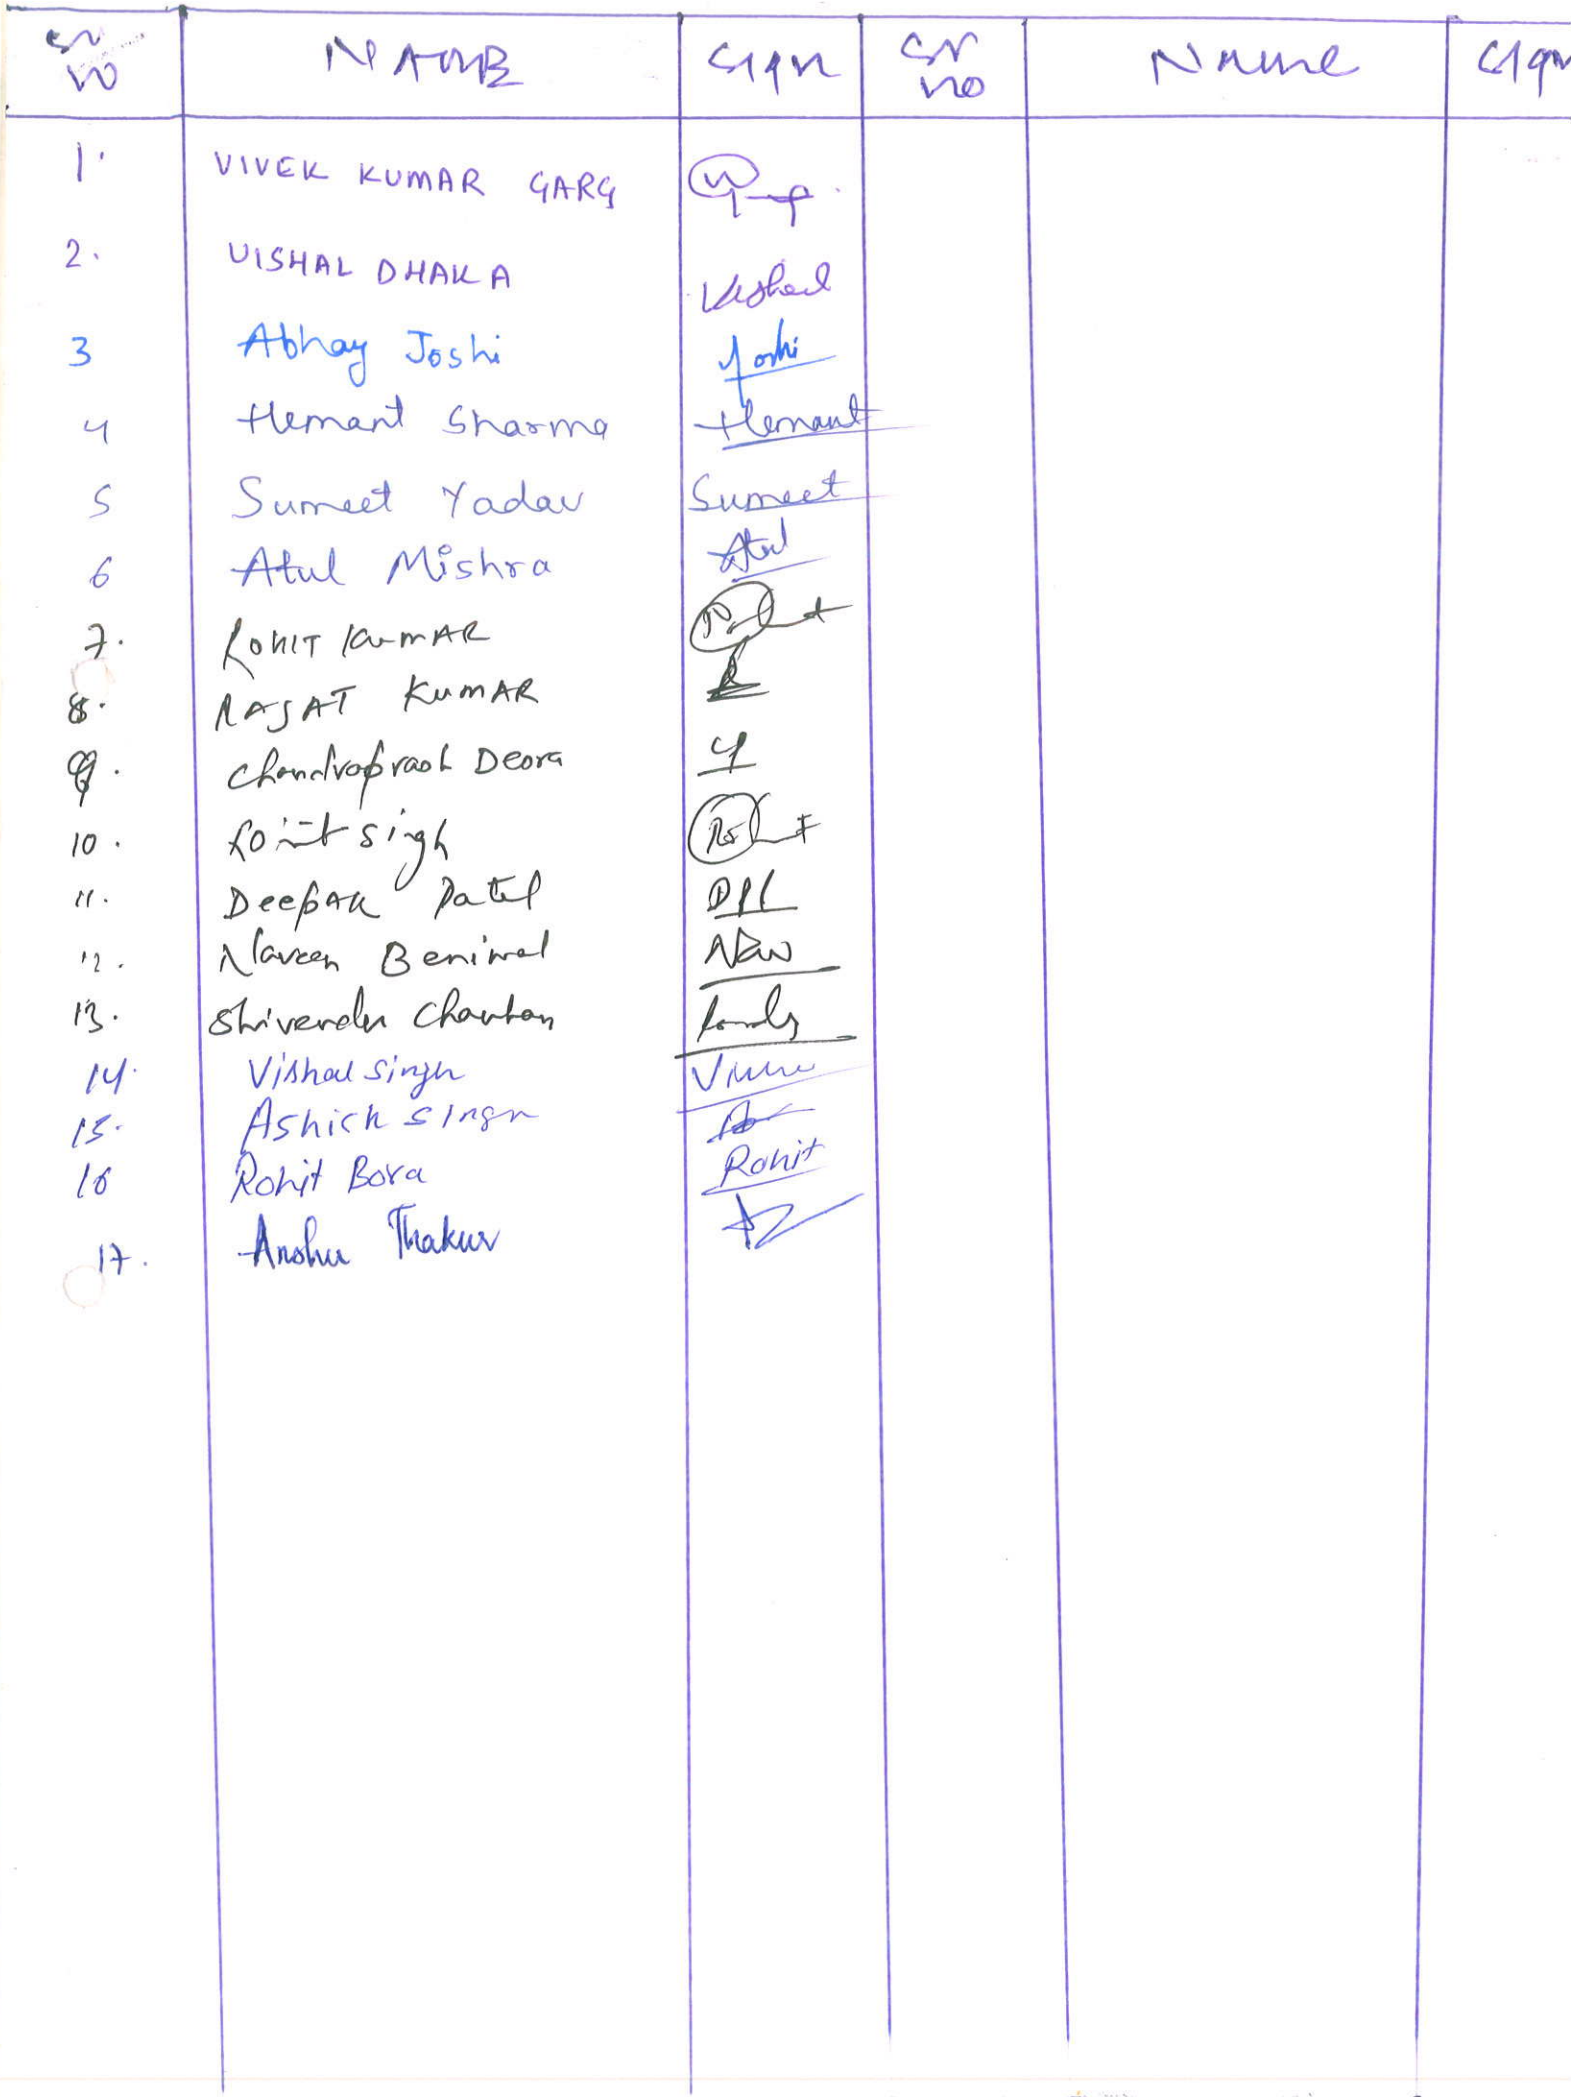 Sr No NAME Sign Sr no Name Sign
1. VIVEK KUMAR GARG
2. VISHAL DHAKA Vishal
3 Abhay Joshi Joshi
4 Hemant Sharma Hemant
5 Sumeet Yadav Sumeet
6 Atul Mishra Atul
7. ROHIT KUMAR
8. RAJAT KUMAR
9. Chandraprash Deora
10. Rohit Singh
11. Deepak Patel
12. Naveen Beniwal
13. Shivendra Chauhan
14. Vishal Singh
15. Ashich Singh
16 Rohit Bora Rohit
17. Anshu Thakur